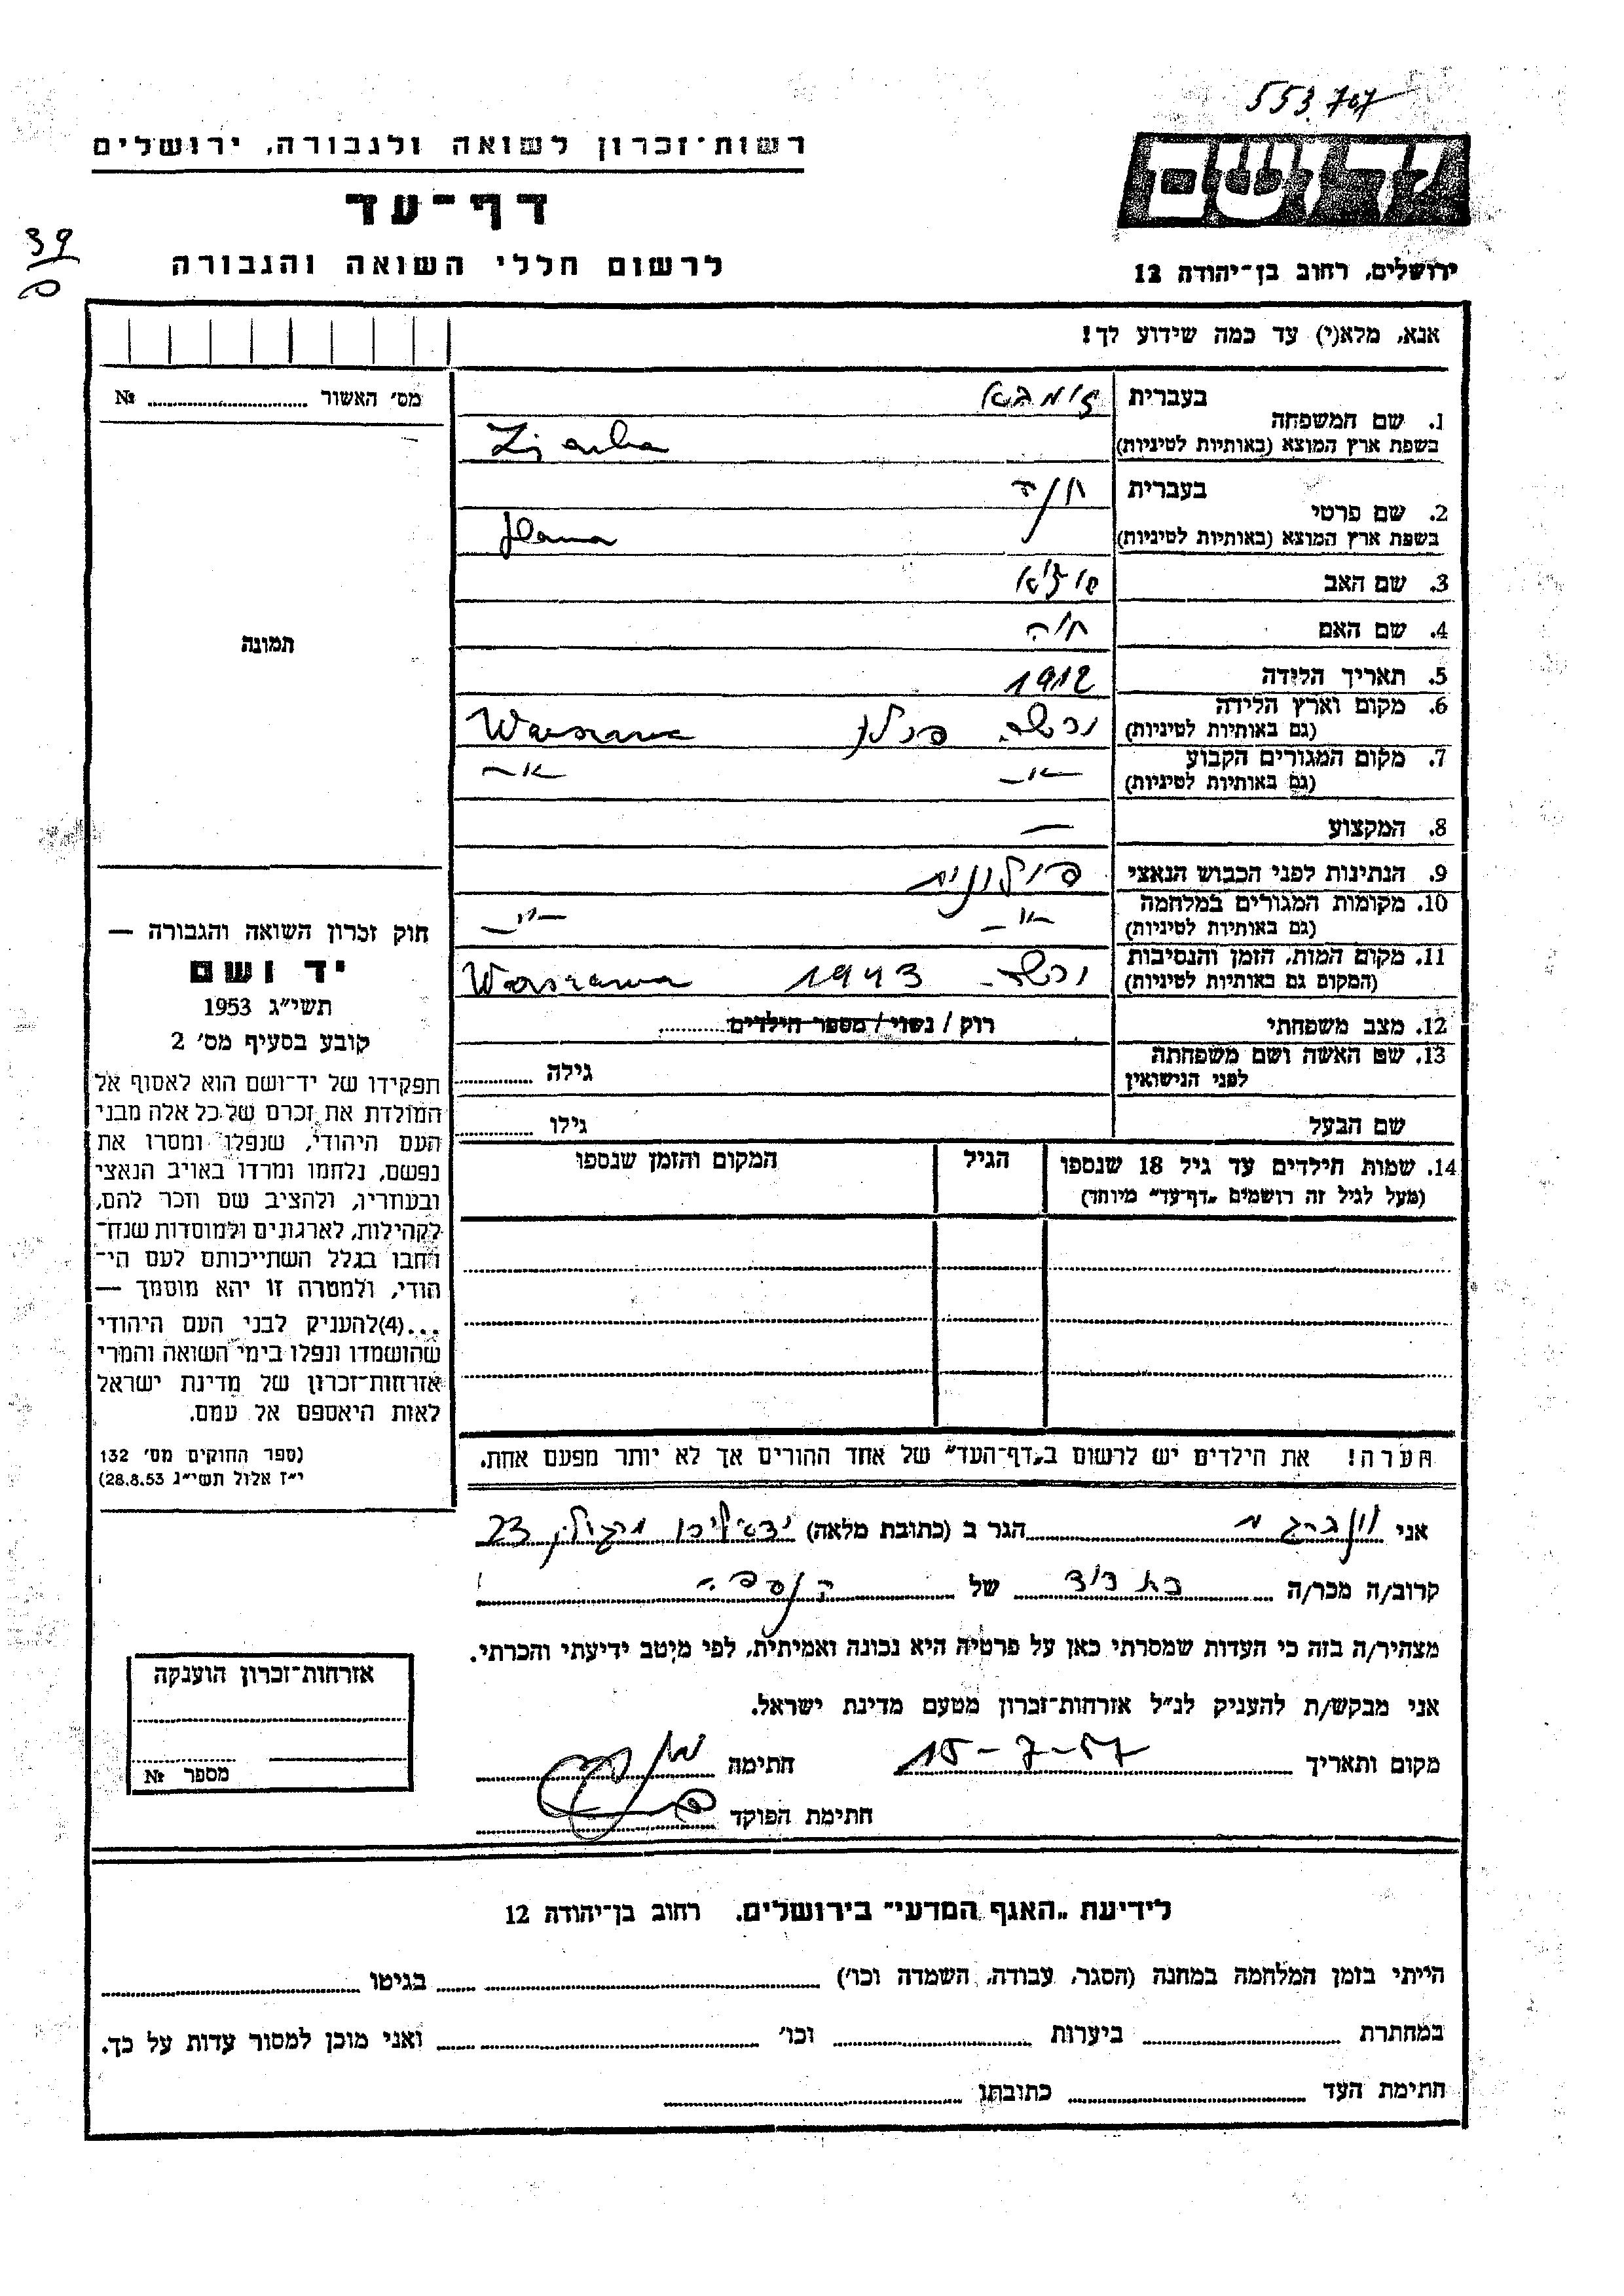 553.707
רשות־זכרון לשואה ולגבורה, ירושלים
ידושם
דף־עד
39
לרשום חללי השואה והגבורה
ירושלים, רחוב בן־יהודה 12
אנא, מלא(י) עד כמה שידוע לך!
מס׳ האשור № 
בעברית
1. שם המשפחה
בשפת ארץ המוצא (באותיות לטיניות)
בעברית חנה
2. שם פרטי
בשפת ארץ המוצא (באותיות לטיניות) Hana
3. שם האב
4. שם האם חיה
תמונה
5. תאריך הלידה 1912
6. מקום וארץ הלידה
(גם באותיות לטיניות) ורשה פולין Warszawa
7. מקום המגורים הקבוע
(גם באותיות לטיניות) –״– –״–
8. המקצוע —
9. הנתינות לפני הכבוש הנאצי פולונית
10. מקומות המגורים במלחמה
(גם באותיות לטיניות) –״– –״–
11. מקום המות, הזמן והנסיבות
(המקום גם באותיות לטיניות) ורשה 1943 Warszawa
12. מצב משפחתי רוק / נשוי / מספר הילדים
13. שם האשה ושם משפחתה
לפני הנישואין גילה
שם הבעל גילו
14. שמות הילדים עד גיל 18 שנספו
(מעל לגיל זה רושמים „דף־עד״ מיוחד)
הגיל
המקום והזמן שנספו
חוק זכרון השואה והגבורה —
יד ושם
תשי״ג 1953
קובע בסעיף מס׳ 2
תפקידו של יד־ושם הוא לאסוף אל
המולדת את זכרם של כל אלה מבני
העם היהודי, שנפלו ומסרו את
נפשם, נלחמו ומרדו באויב הנאצי
ובעוזריו, ולהציב שם וזכר להם,
לקהילות, לארגונים ולמוסדות שנח־
רבו בגלל השתייכותם לעם הי־
הודי, ולמטרה זו יהא מוסמך —
...(4)להעניק לבני העם היהודי
שהושמדו ונפלו בימי השואה והמרי
אזרחות־זכרון של מדינת ישראל
לאות היאספם אל עמם.
(ספר החוקים מס׳ 132
י״ז אלול תשי״ג 28.8.53)
הערה! את הילדים יש לרשום ב„דף־העד״ של אחד ההורים אך לא יותר מפעם אחת.
אני הגר ב (כתובת מלאה) 23
קרוב/ה מכר/ה בת דוד של הנספה
מצהיר/ה בזה כי העדות שמסרתי כאן על פרטיה היא נכונה ואמיתית, לפי מיטב ידיעתי והכרתי.
אני מבקש/ת להעניק לנ״ל אזרחות־זכרון מטעם מדינת ישראל.
מקום ותאריך 15-7-57 חתימה
חתימת הפוקד
אזרחות־זכרון הוענקה
מספר №
לידיעת „האגף המדעי״ בירושלים. רחוב בן־יהודה 12
הייתי בזמן המלחמה במחנה (הסגר, עבודה, השמדה וכו׳) בגיטו
במחתרת ביערות וכו׳ ואני מוכן למסור עדות על כך.
חתימת העד כתובתו